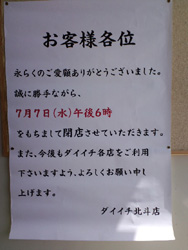 お客様各位
永らくのご愛顧ありがとうございました。
誠に勝手ながら、
7月7日(水)午後6時
をもちまして閉店させていただきます。
また、今後もダイイチ各店をご利用
下さいますよう、よろしくお願い申し
上げます。
ダイイチ北斗店